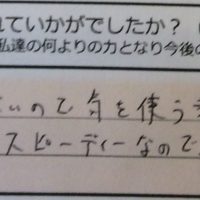 れていかがでしたか?
私達の何よりの力となり今後の
いので気を使う
スピーディーなので